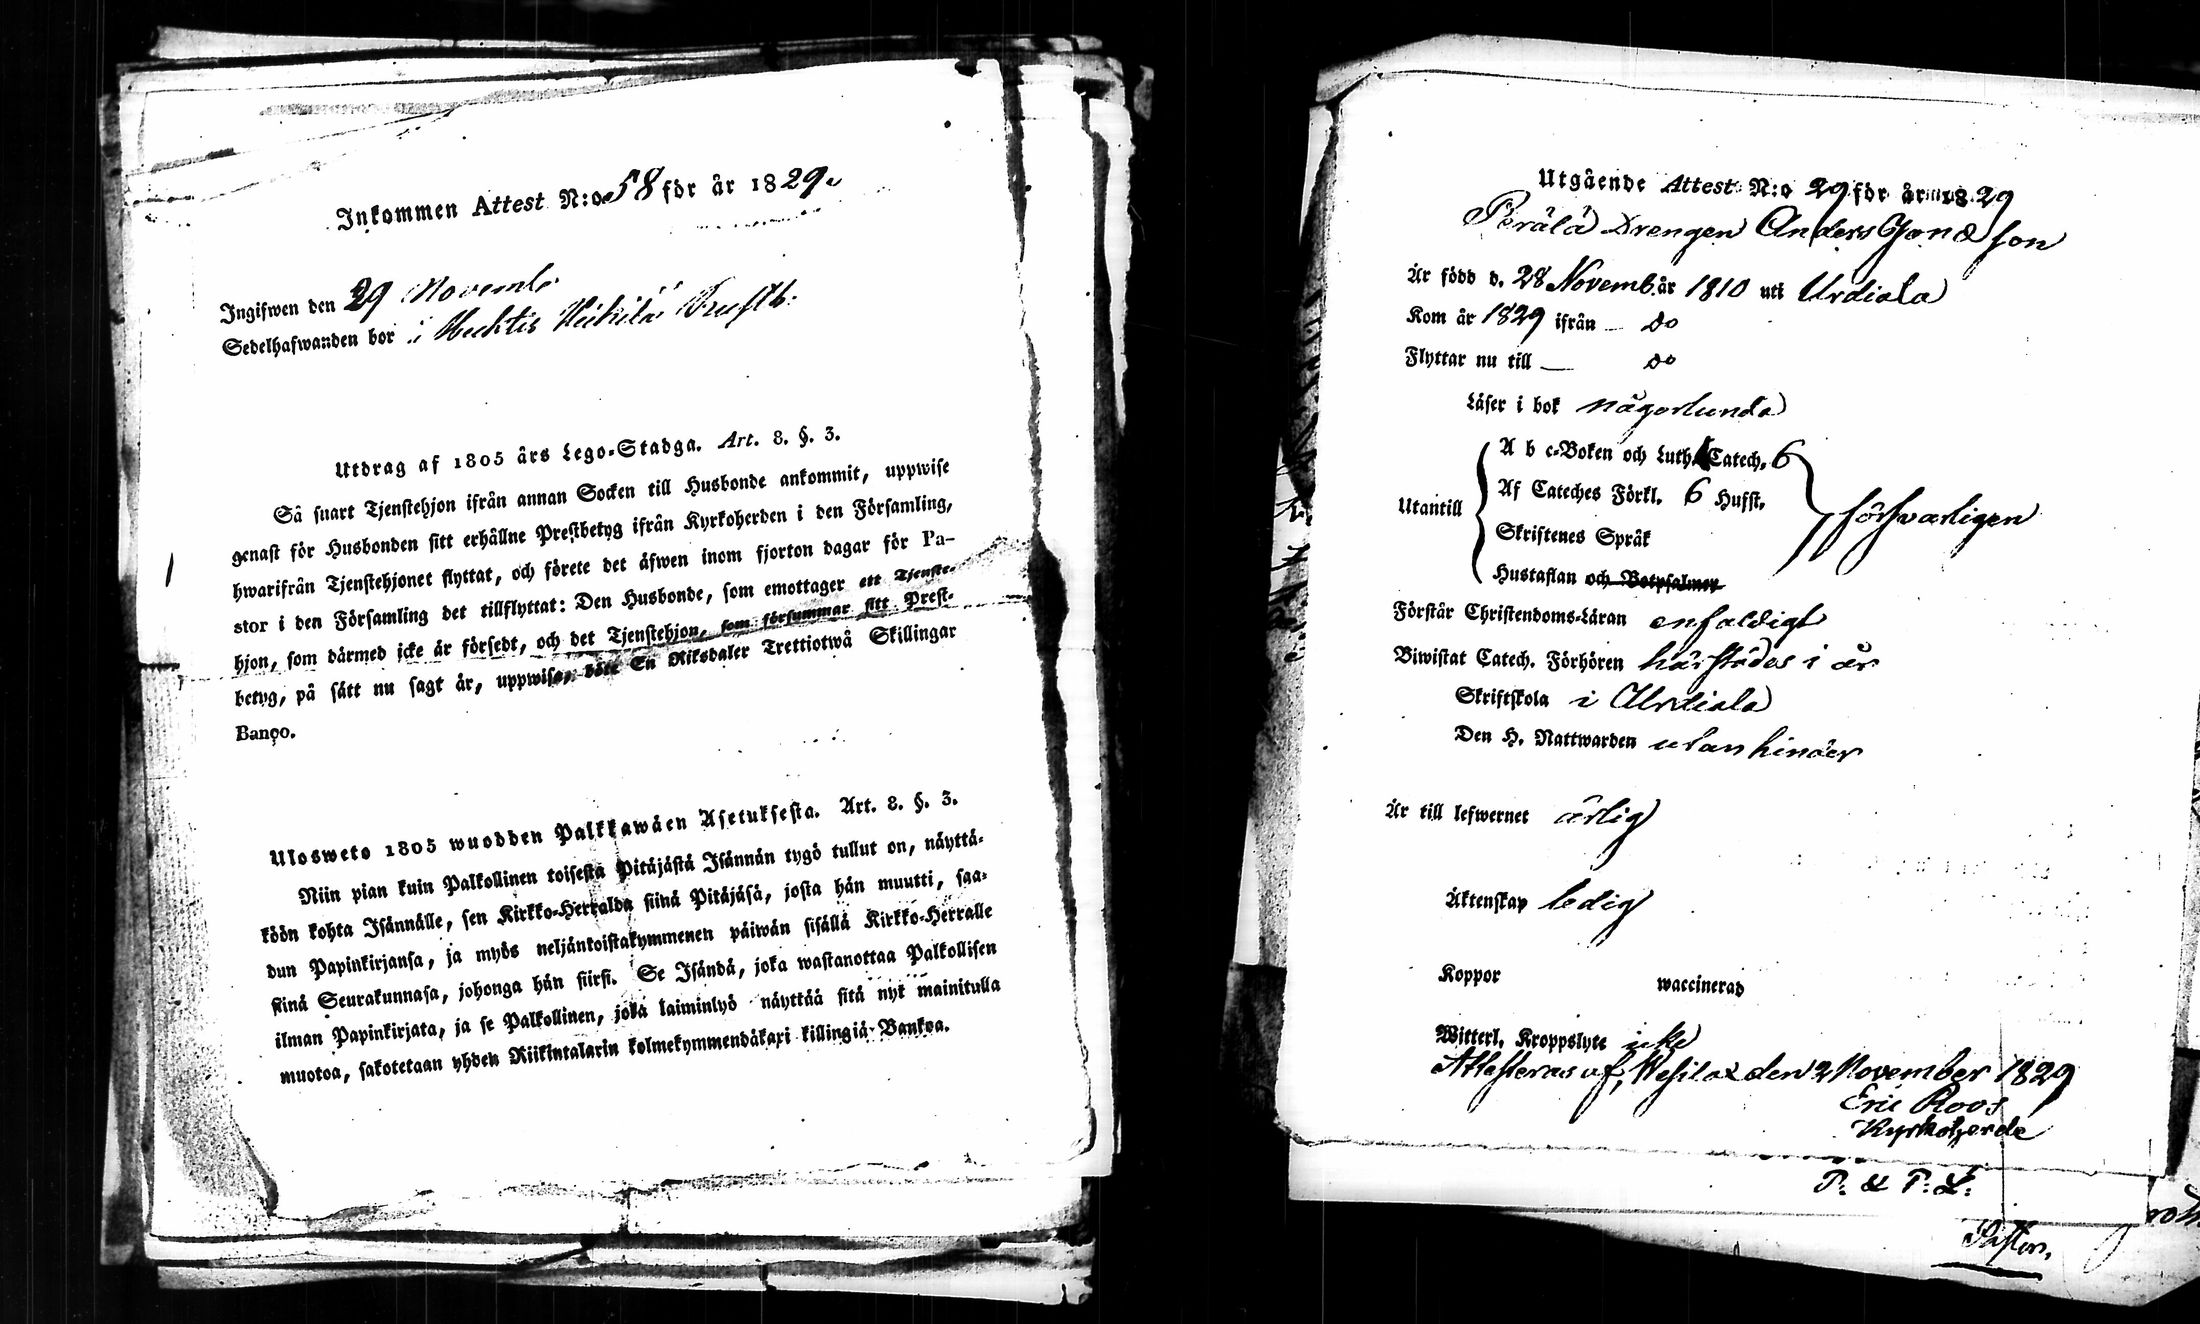 Inkommen Attest N:o 58 för år 1829.
Ingifwen den 29 Novemb.
Sedelhafwanden bor i Huhtis
Utdrag af 1805 års Lego-Stadga. Art. 8. §. 3.
Så snart Tjenstehjon ifrån annan Socken till Husbonde ankommit, uppwise
genast för Husbonden sitt erhållne Prestbetyg ifrån Kyrkoherden i den Församling,
hwarifrån Tjenstehjonet flyttat, och förete det äfwen inom fjorton dagar för Pa-
stor i den Församling det tillflyttat: Den Husbonde, som emottager ett Tjenste-
hjon, som därmed icke är försedt, och det Tjenstehjon, som försummar sitt Prest-
betyg, på sätt nu sagt är, uppwisa, böte En Riksdaler Trettiotwå Skillingar
Banco.
Ulosweto 1805 wuodden Palkkawäen Asetuksesta. Art. 8. §. 3.
Niin pian kuin Palkollinen toisesta Pitäjästä Isännän tygö tullut on, näyttä-
köön kohta Isännälle, sen Kirkko-Herralda siinä Pitäjäsä, josta hän muutti, saa-
dun Papinkirjansa, ja myös neljäntoistakymmenen päiwän sisällä Kirkko-Herralle
siinä Seurakunnasa, johonga hän siirsi. Se Isändä, joka wastanottaa Palkollisen
ilman Papinkirjata, ja se Palkollinen, joka laiminlyö näyttää sitä nyt mainitulla
muotoa, sakotetaan yhden Riikintalarin kolmekymmendäkaxi killingiä Bankoa.
Utgående Attest N:o 29 för år 1829
Perälä Drengen Anders Jonæ son
Är född d. 28 Novemb. år 1810 uti Urdiala
Kom år 1829 ifrån — do
Flyttar nu till — do
Läser i bok någorlunda
A b c-Boken och Luth. Catech. 6
Af Cateches Förkl. 6 Hufst.
Utantill försvarligen
Skriftenes Språk
Hustaflan och Botpsalmer
Förstår Christendoms-Läran enfaldigt
Biwistat Catech. Förhören härstädes i år
Skriftskola i Urdiala
Den H. Nattwarden utan hinder
Är till lefwernet ärlig
Äktenskap ledig
Koppor waccinerad
Witterl. Kroppslyte icke
Attesteras af, Wesilax den 2 November 1829
Eric Roos
Kyrkoherde
P. & P. L:
Pastor.